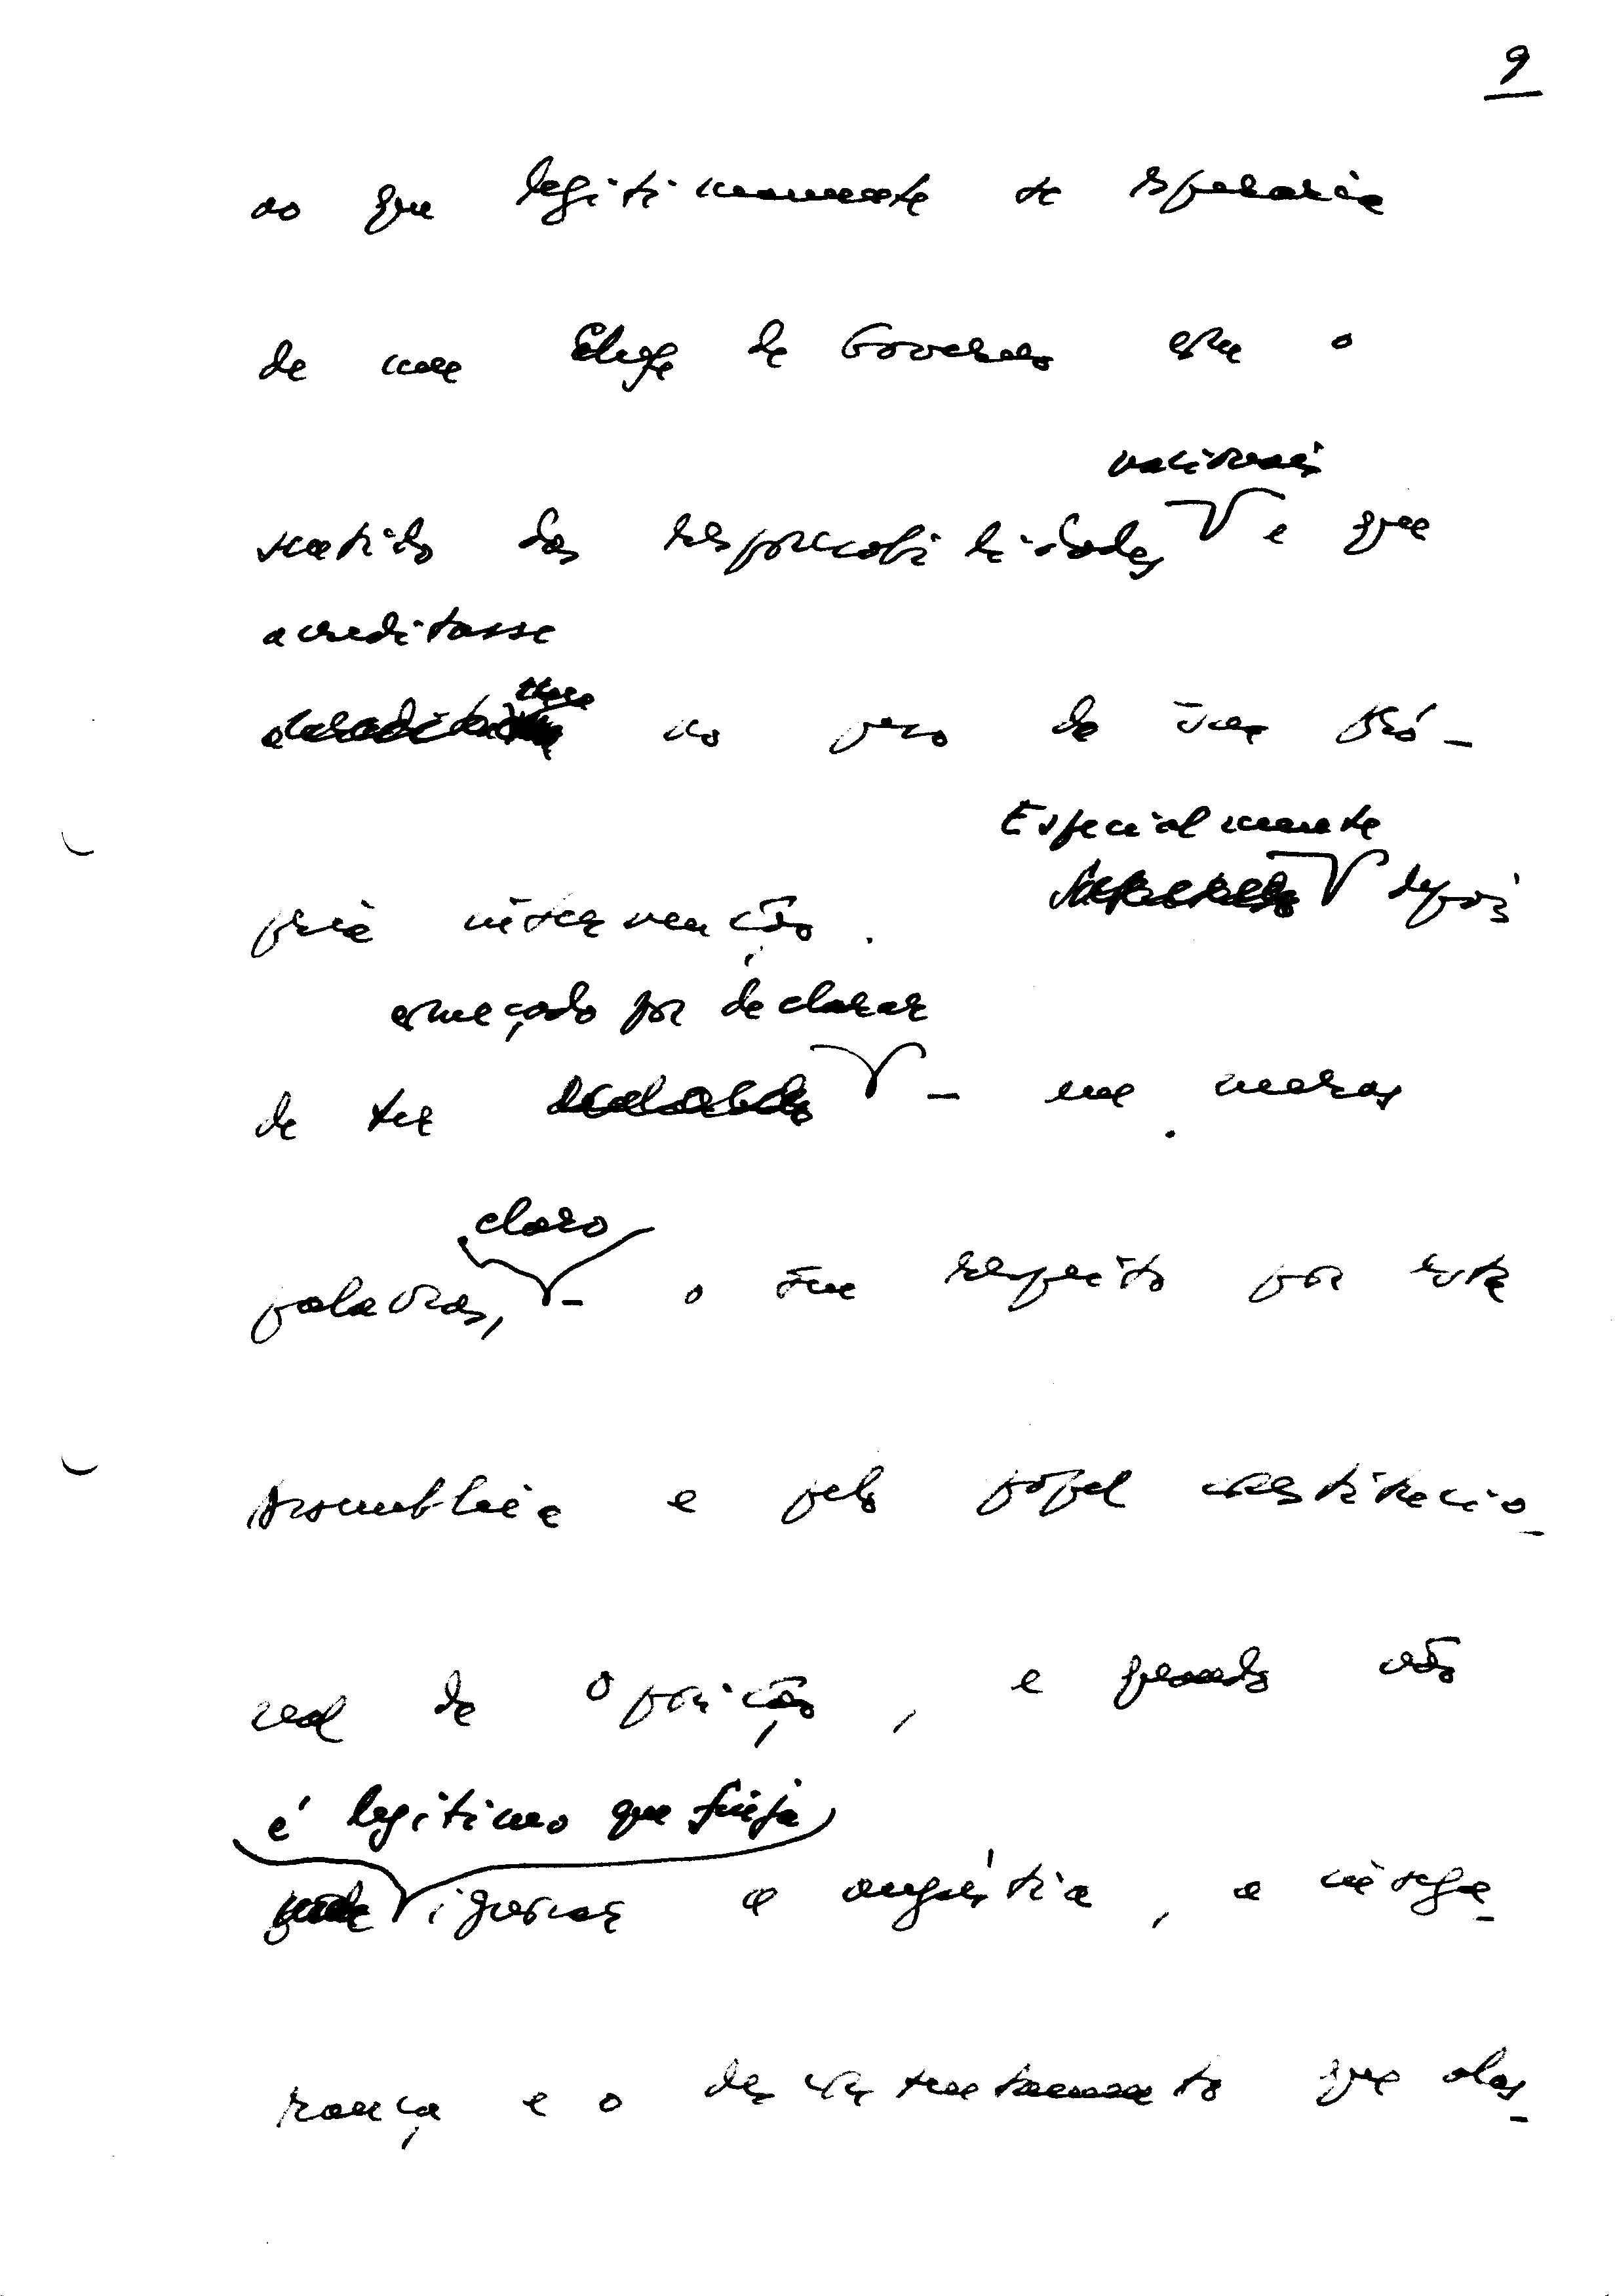 9
ao que legitimamente se esperaria
de um Chefe de Governo com o
nacionais
sentido das responsabilidades e que
acreditasse
no peso da sua pró-
Especialmente
pria intervenção. depois
começado por declarar
de ter - em meras
claro
palavras, - o seu respeito por esta
Assembleia e pelo papel institucio-
nal da Oposição, e quando não
é legítimo que finja
pode ignorar a angústia, a insegu-
rança e o descontentamento que alas-